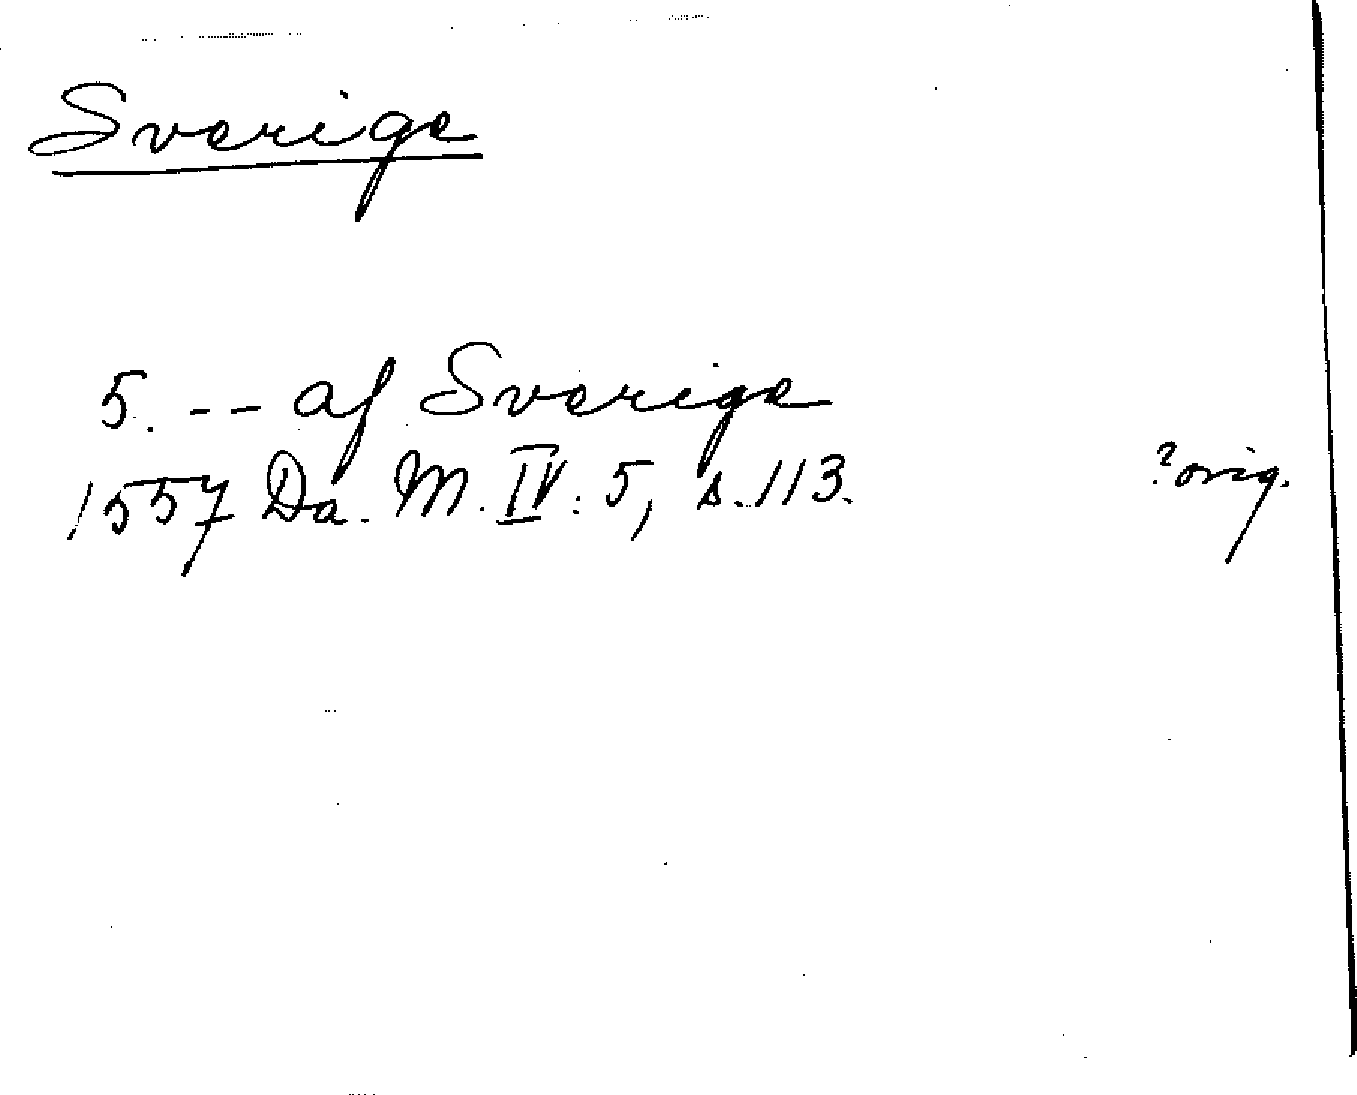 Sverige
5. -- af Sverige
1557 Da. M. IV: 5, s. 113.
? orig.